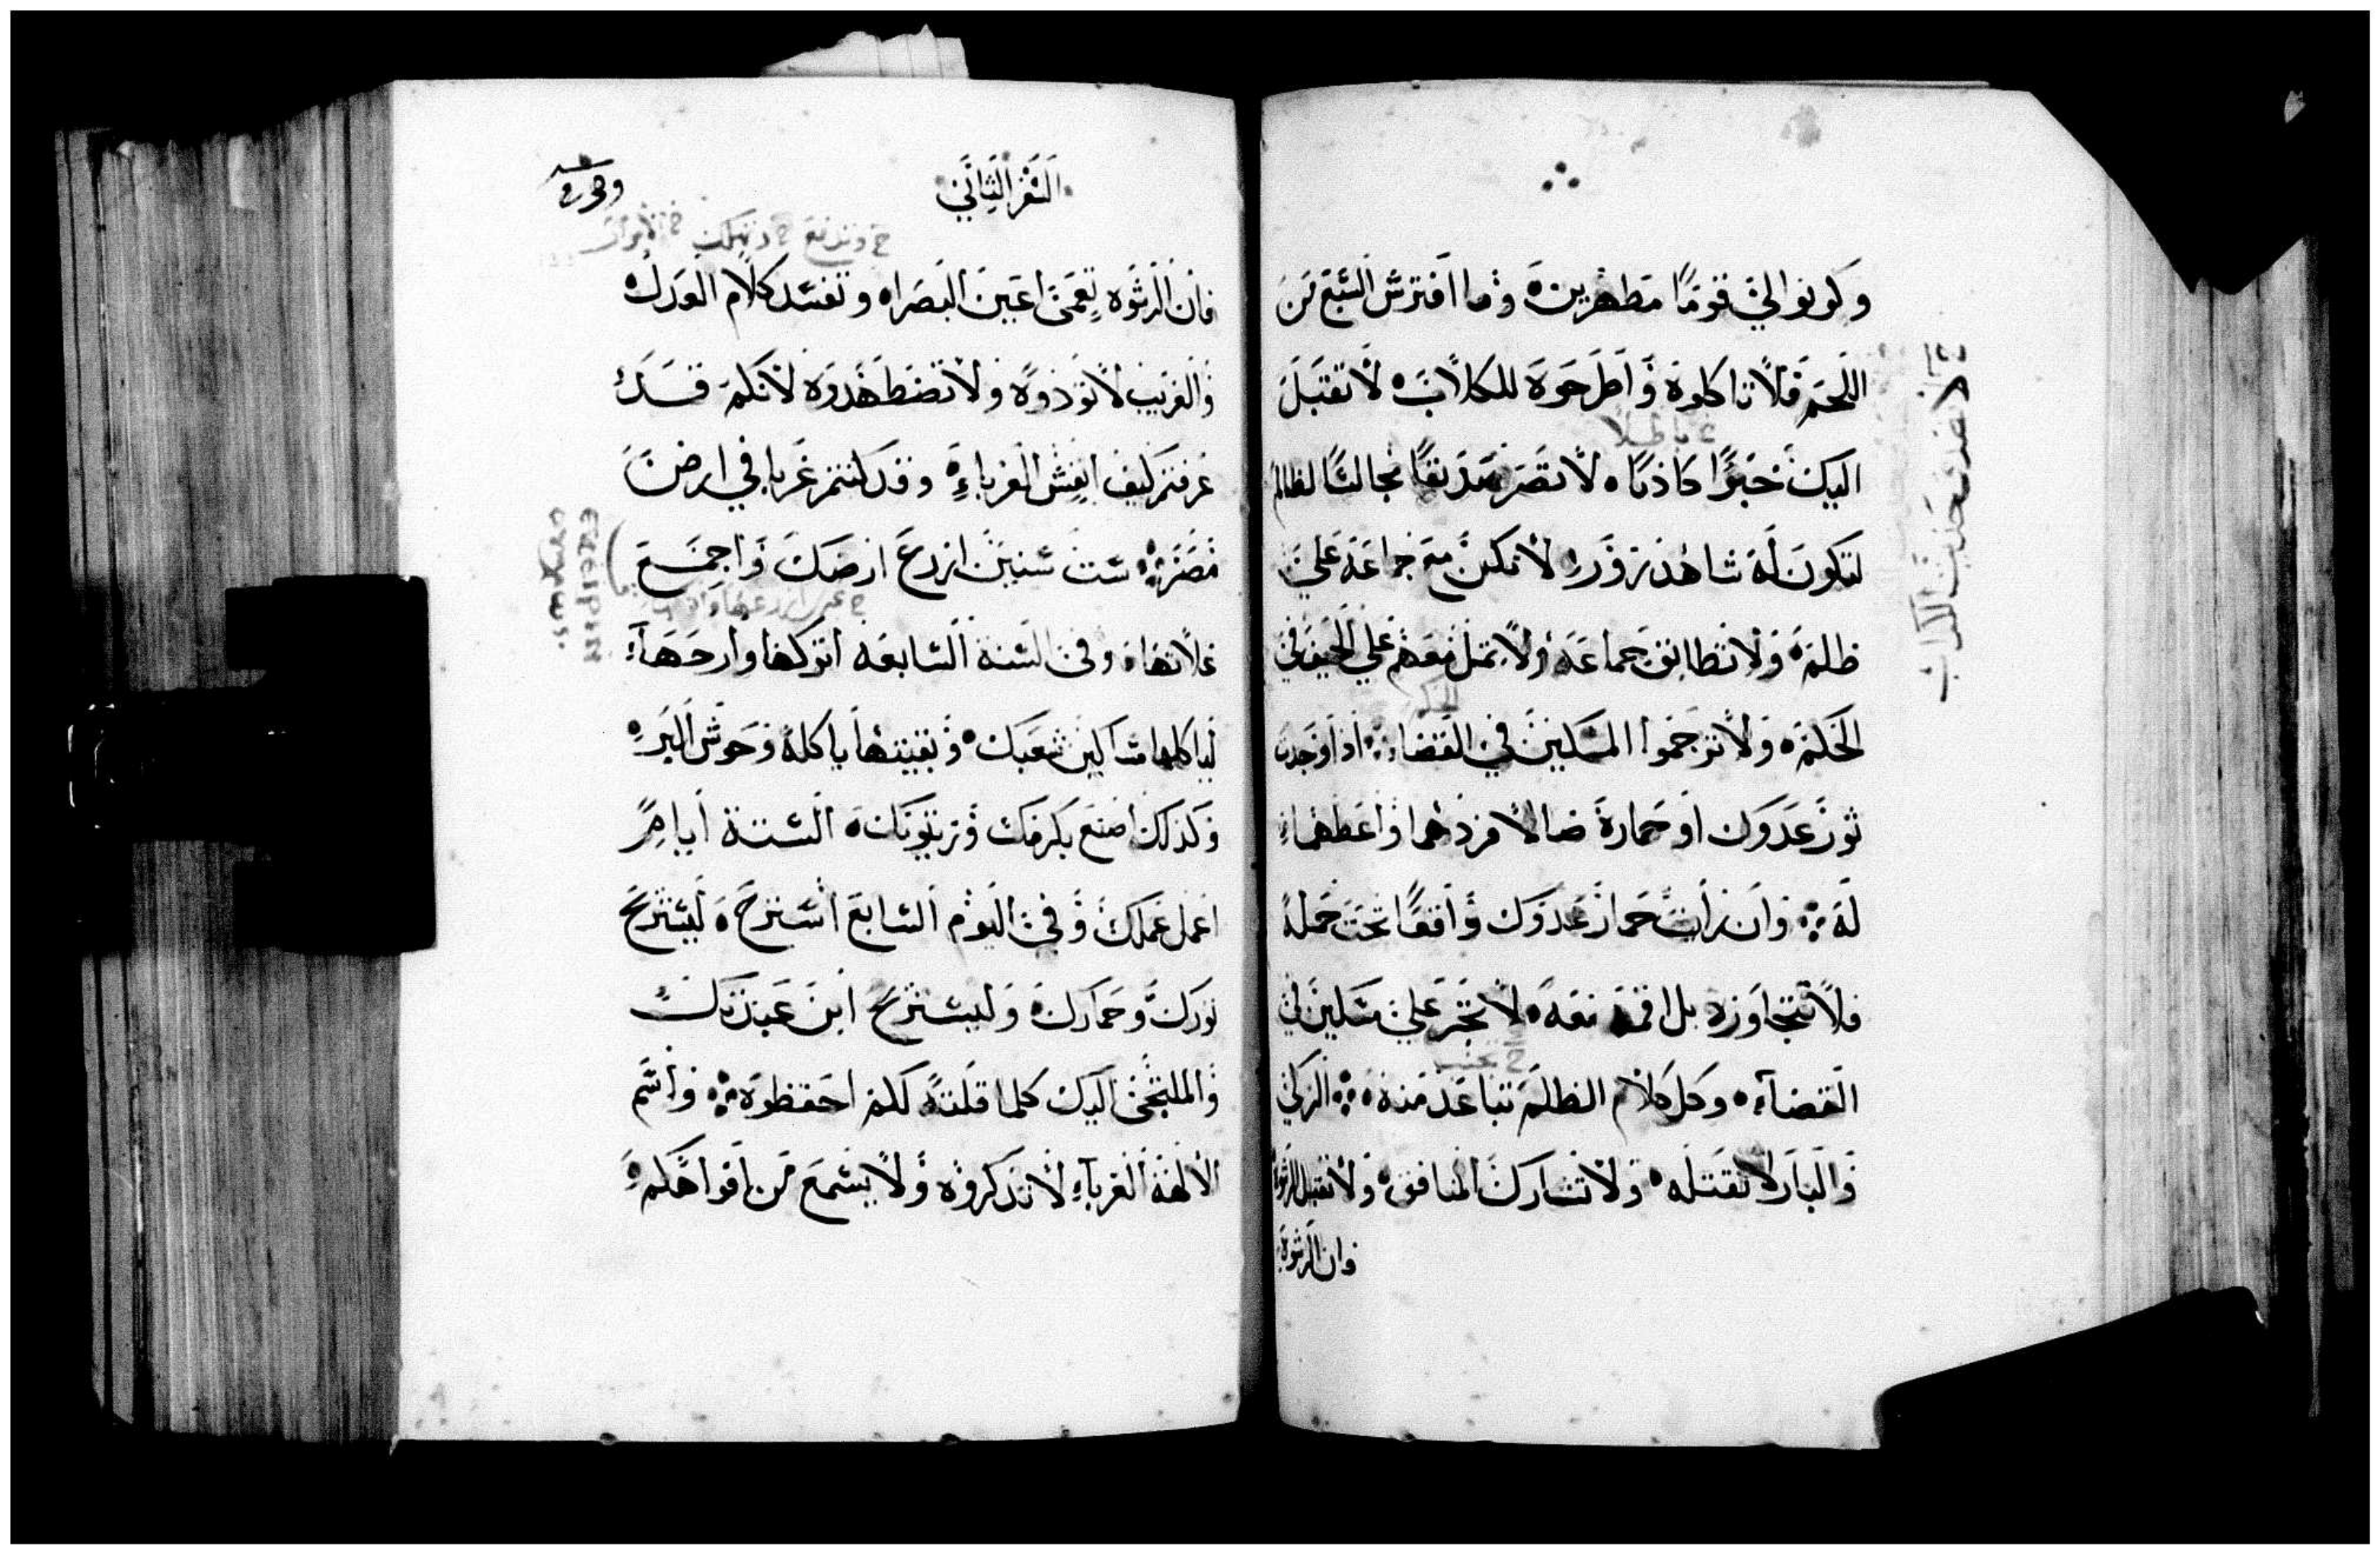 وكونوا لي قومًا مطهرين وما افترس السبع من
اللحم فلا تاكلوه واطرحوه للكلاب لا تقبل
ع باطلاً
اليك خبرًا كاذبًا لا تصر صديقًا مجالسًا لظالم
لتكون له شاهد زور لا تكن مع جماعة علي
ظلمه ولا تطابق جماعة ولا تمل معهم علي الحيف في
الحكمه ولا ترحموا المسكين في القضاء اذا وجدت
ثور عدوك او حماره ضالا فردهما واعطهما
له وان رأيت حمار عدوك واقعًا تحت حمله
فلا تتجاوزه بل اقمه معه لا تجر علي مسكين في
القضآء وكل كلام الظلم تباعد منه الزكي
والبار لا تقتله ولا تشارك المنافق ولا تقبل الرشوة
وان الرشوة
السفر الثاني
فان الرشوه تعمي اعين البصراه وتفسد كلام العدل
والغريب لا تؤذوه ولا تضطهدوه لانكم قد
عرفتم كيف انفس الغرباء وقد كنتم غربا في ارض
مصر ست سنين ازرع ارضك واجمع
غلاتها وفي السنة السابعه اتركها وارحهآ
لياكلها مساكين شعبك وبقيتها ياكله وحوش البر
وكذلك اصنع بكرمك وزيتونك الستة أيام
اعمل عملك وفي اليوم السابع استرح ليسترح
ثورك وحمارك وليسترح ابن عبدتك
والملتجي اليك كلما قلته لكم احفظوه واسم
الالهة الغرباء لا تذكروه ولا يسمع من افواهكم